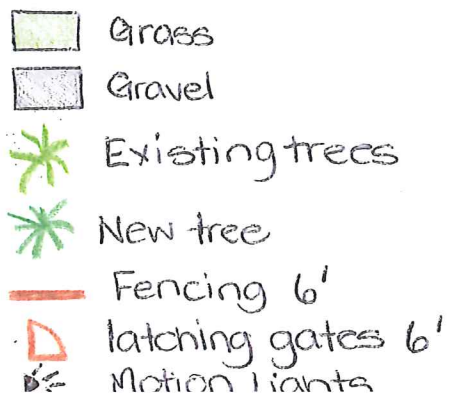 Grass
Gravel
Existing trees
New tree
Fencing 6'
latching gates 6'
Motion Lights